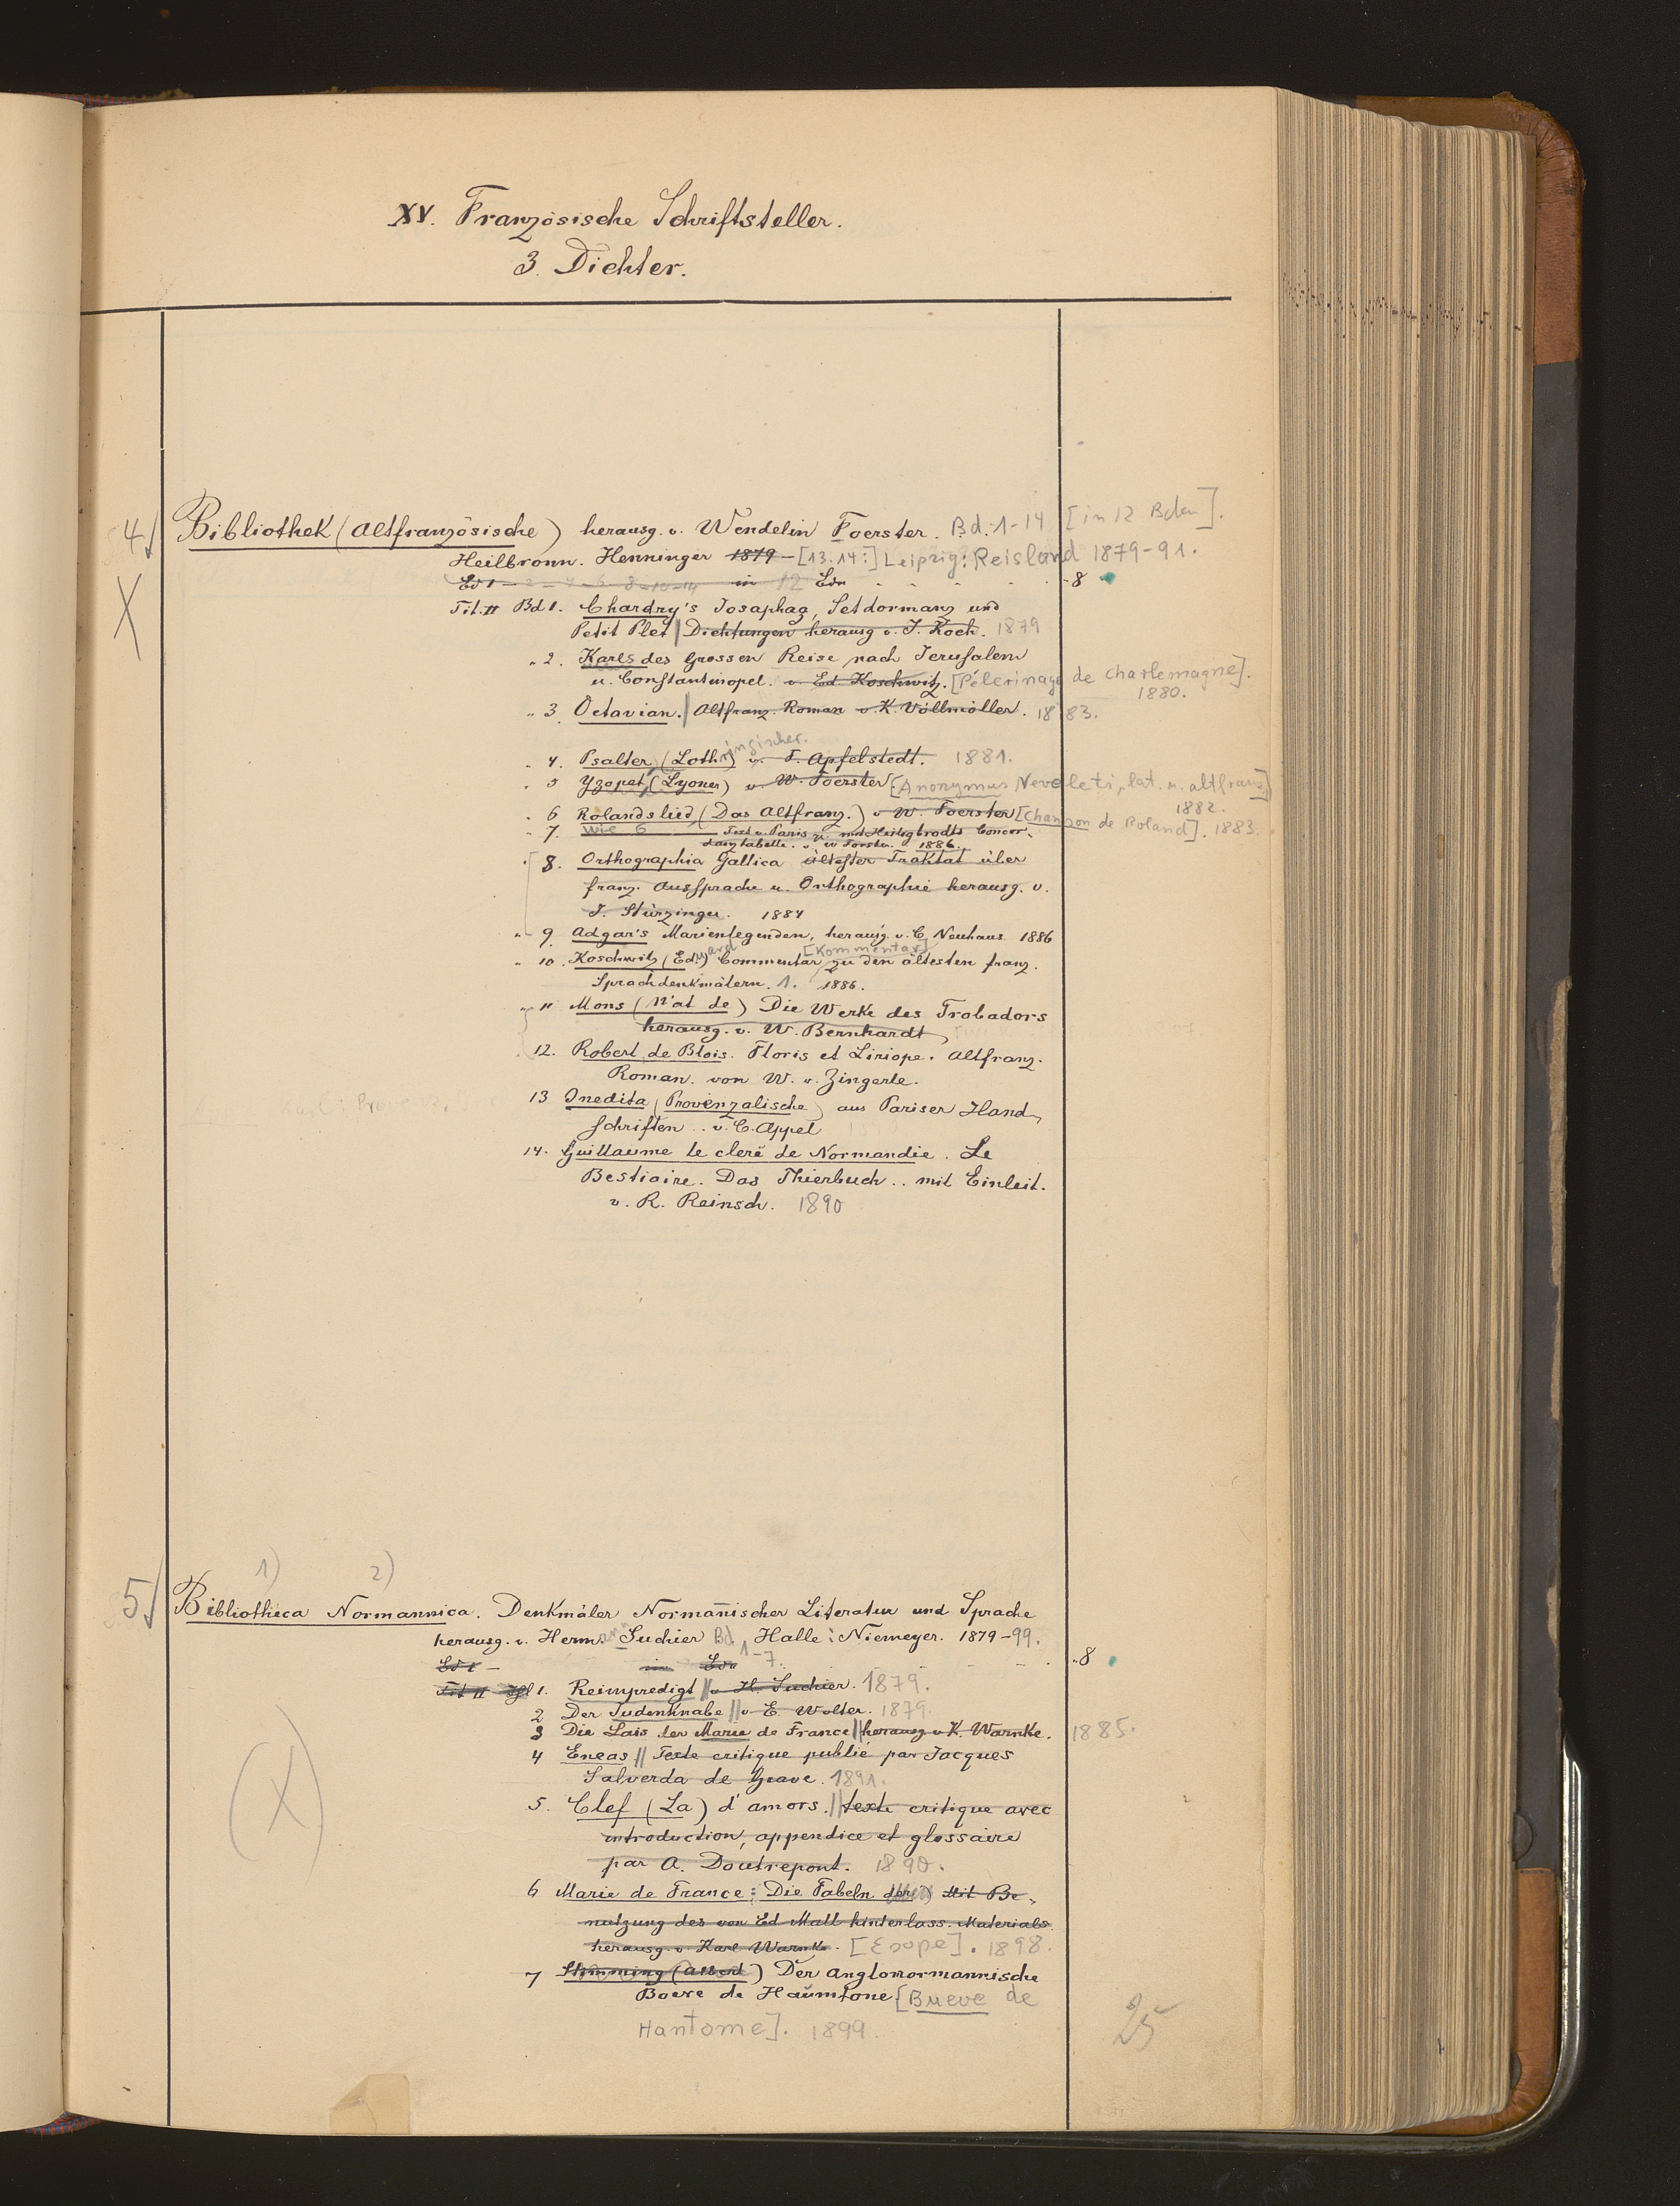 XV. Französische Schriftsteller.
3. Dichter.
4 Bibliothek (Altfranzösische) herausg. v. Wendelin Foerster. Bd. 1-14 [in 12 Bden].
Heilbronn. Henninger 1879 - [13.14:] Leipzig: Reisland 1879-91.
Bd 1 - 2 - 4 - 6 8-10-14 in 12 Bdn - 8
X
Tit. II Bd 1. Chardry's Josaphaz, Setdormanz und
Petit Plet | Dichtungen herausg v. J. Koch. 1879
" 2. Karls des Grossen Reise nach Jerusalem
u. Constantinopel. v. Ed. Koschwitz. [Pélerinage de Charlemagne].
1880.
" 3. Octavian. | Altfranz. Roman v. K. Vollmöller. 1883.
" 4. Psalter (Lothringischer.) v. F. Apfelstedt. 1881.
" 5 Yzopet (Lyoner) v. W. Foerster [Anonymus Neveleti, lat. u. altfranz]
1882.
" 6 Rolandslied (Das Altfranz.) v W. Foerster [Chanson de Roland]. 1883.
" 7. wie 6 Text v. Paris
danztabelle. v. W Förster. 1886.
8. Orthographia Gallica ältester Traktat über
franz. Aussprache u. Orthographie herausg. v.
J. Stürzinger. 1884
" 9. Adgar's Marienlegenden, herausg. v. C. Neuhaus 1886
" 10. Koschwitz (Eduard) Commentar [Kommentar] zu den ältesten franz.
Sprachdenkmälern. 1. 1886.
" 11 Mons (N'at de) Die Werke des Trobadors
herausg. v. W. Bernhardt
12. Robert de Blois. Floris et Liriope. Altfranz.
Roman. von W. v. Zingerle.
13 Inedita (Provenzalische) aus Pariser Hand-
schriften .. v. C. Appel
14. Guillaume le clerc de Normandie. Le
Bestiaire. Das Thierbuch .. mit Einleit.
v. R. Reinsch. 1890
1) 2)
5 Bibliotheca Normannica. Denkmäler Normanischer Literatur und Sprache
herausg. v. Hermann Suchier Bd. 1-7. Halle: Niemeyer. 1879-99.
Bd 1 - in Bdn - 8
Tit II Bd 1. Reimpredigt || v H. Suchier. 1879.
2 Der Judenknabe || v E. Wolter. 1879.
3 Die Lais der Marie de France || herausg v K. Warnke. 1885.
4 Eneas || Texte critique publié par Jacques
Salverda de Grave. 1891.
5. Clef (La) d'amors. || texte critique avec
introduction, appendice et glossaire
par A. Doutrepont. 1890.
(X)
6 Marie de France: Die Fabeln der Mit Be-
nutzung des von Ed Mall hinterlass. Materials
herausg. v. Karl Warnke. [Esope]. 1898.
7 Stimming (Albert) Der Anglonormannische
Boeve de Haumtone [Bueve de
Hantome]. 1899.
25